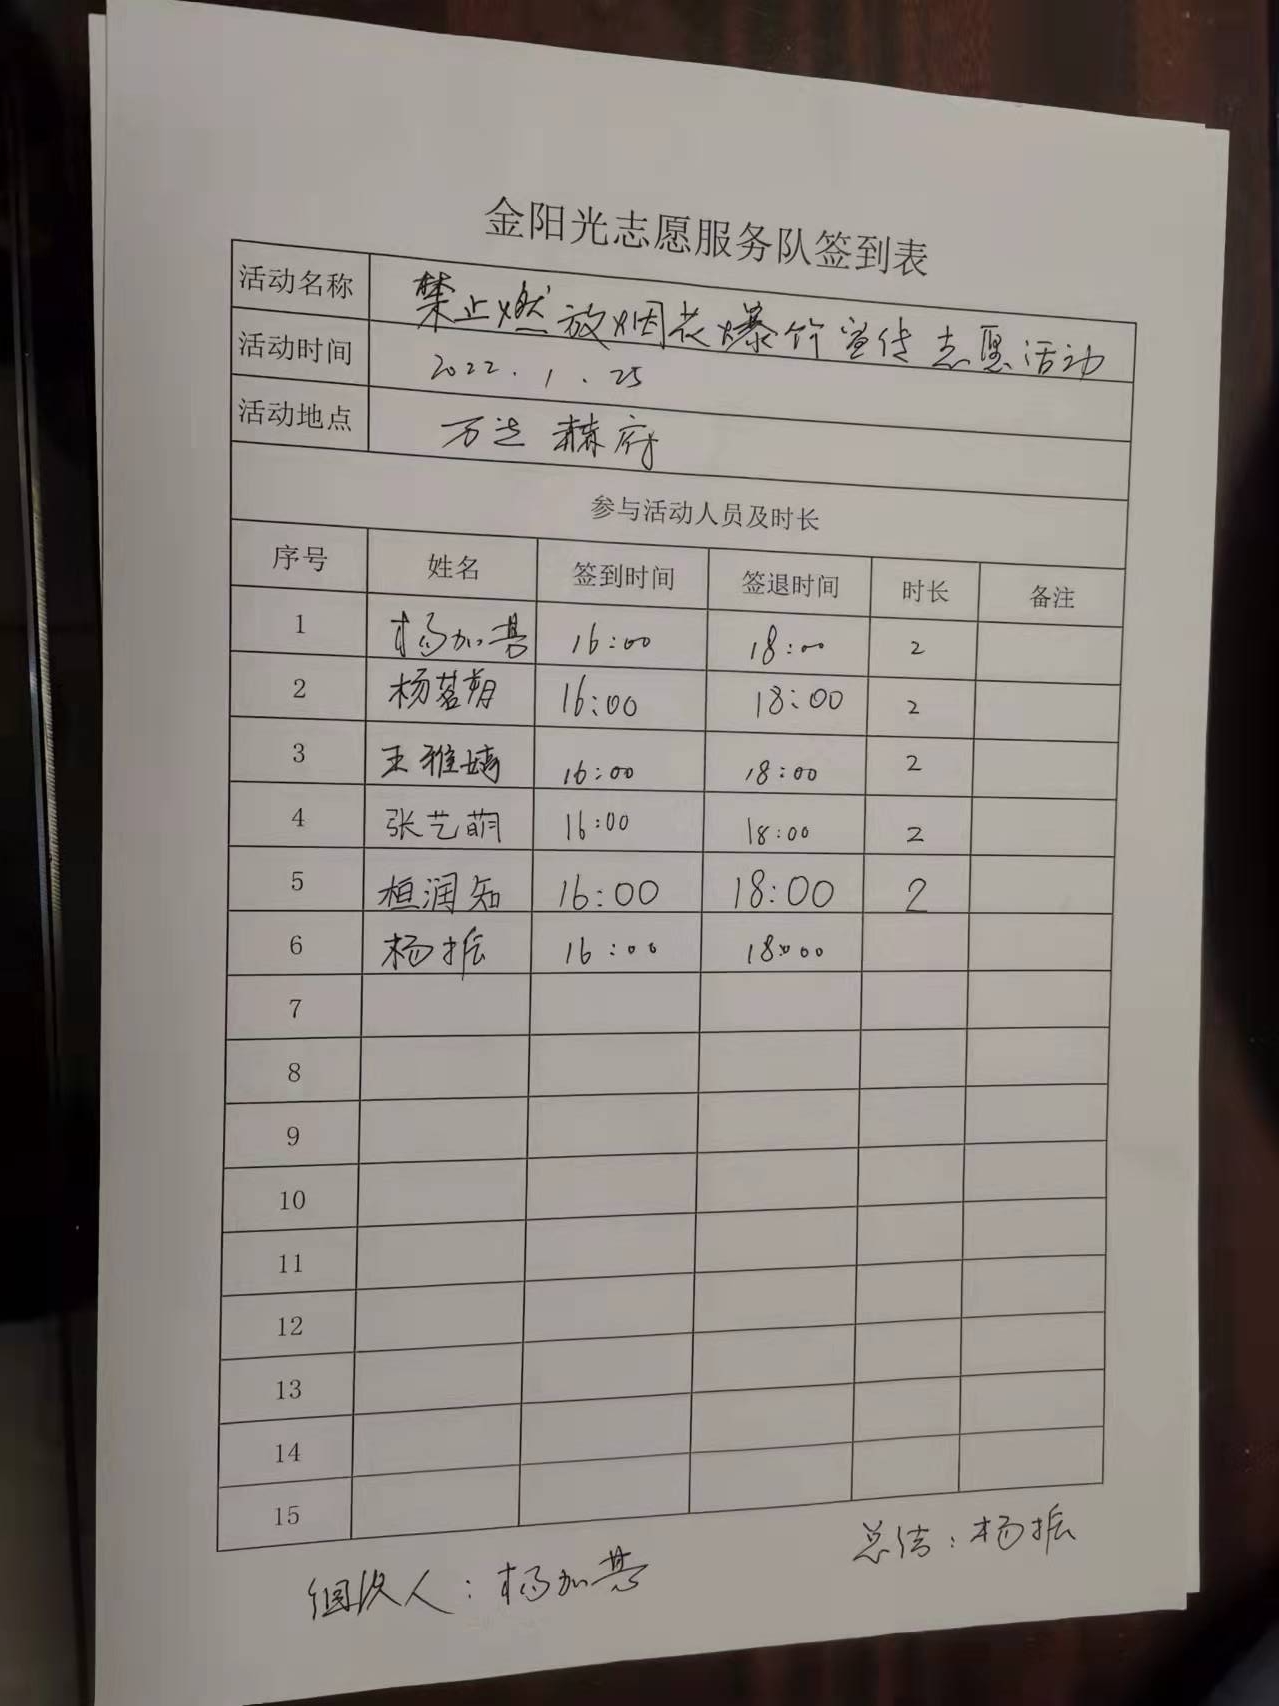 金阳光志愿服务队签到表
活动名称 禁止燃放烟花爆竹宣传志愿活动
活动时间 2022.1.25
活动地点 万达赫府
参与活动人员及时长
序号 姓名 签到时间 签退时间 时长 备注
1 杨加慕 16:00 18:00 2
2 杨茗朔 16:00 18:00 2
3 王雅婧 16:00 18:00 2
4 张艺萌 16:00 18:00 2
5 桓润知 16:00 18:00 2
6 杨振 16:00 18:00
7
8
9
10
11
12
13
14
15
组织人:杨加慕 总结:杨振